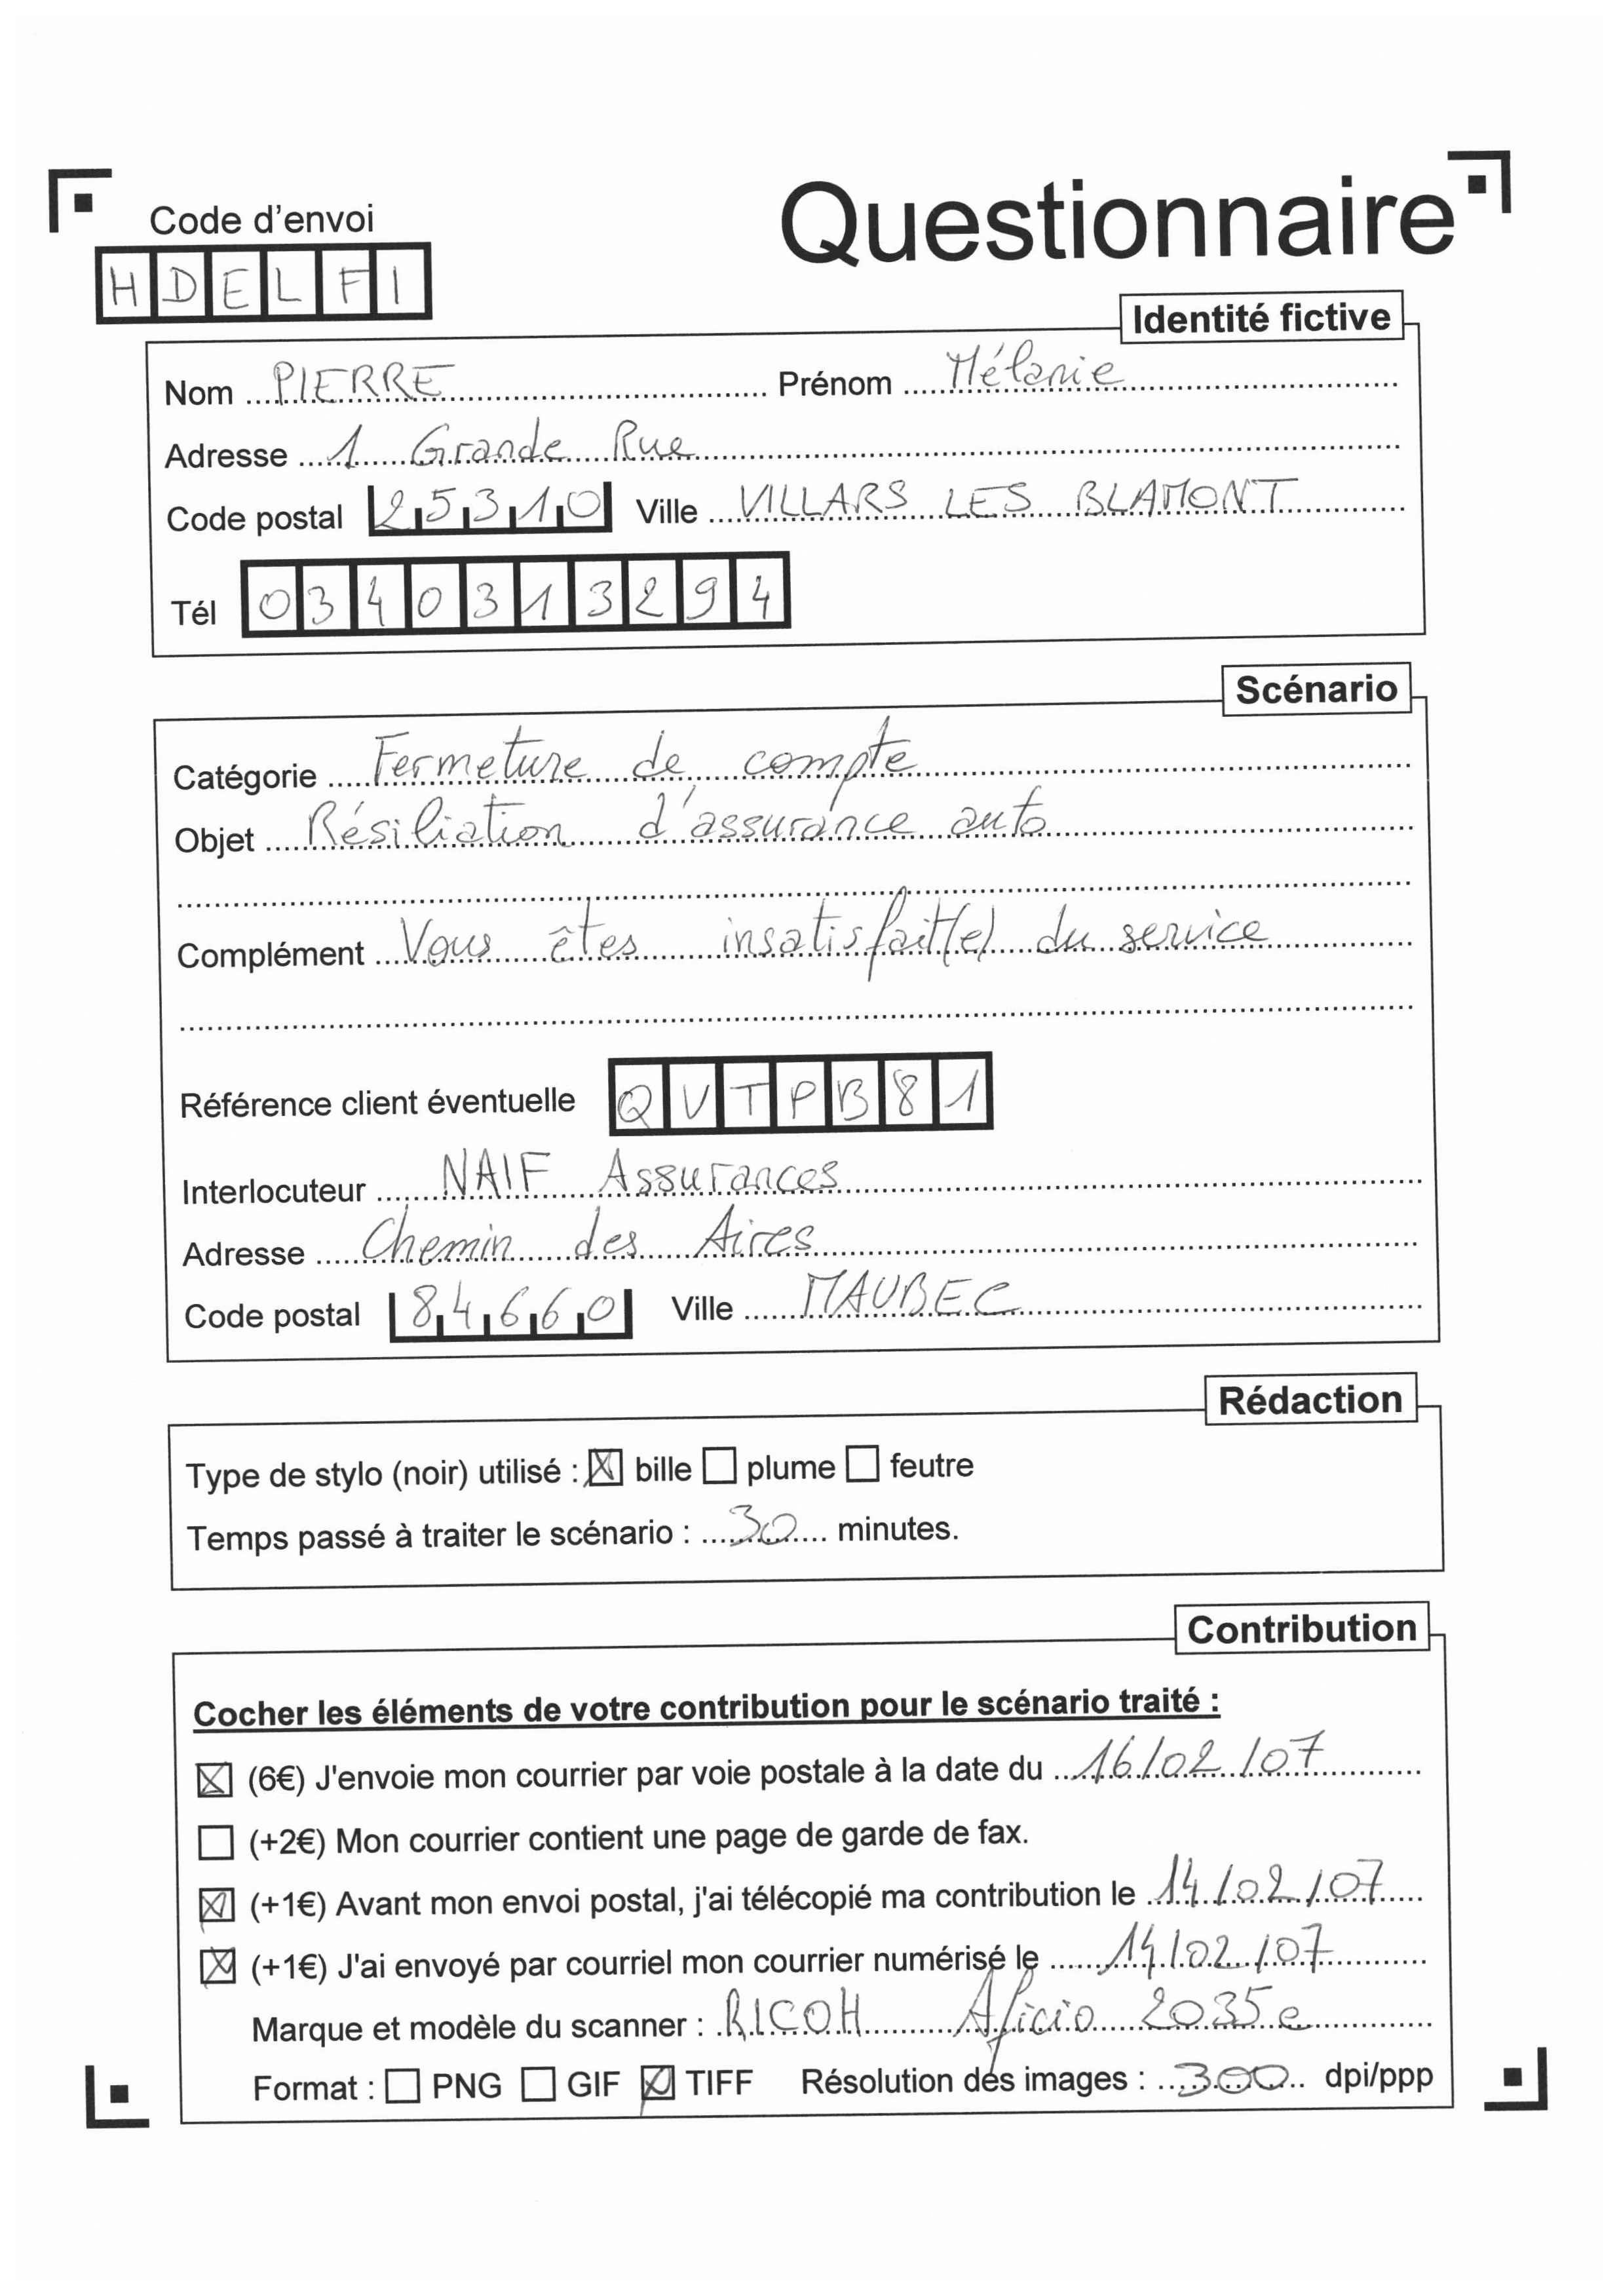 Questionnaire
Code d'envoi
HDELFI
Identité fictive
Nom PIERRE Prénom Mélanie
Adresse 1 Grande Rue
Code postal 25310 Ville VILLARS LES BLAMONT
Tél 0340313294
Scénario
Catégorie Fermeture de compte
Objet Résiliation d'assurance auto
Complément Vous êtes insatisfait(e) du service
Référence client éventuelle QVTPB81
Interlocuteur NAIF Assurances
Adresse Chemin des Aires
Code postal 84660 Ville MAUBEC
Rédaction
Type de stylo (noir) utilisé : ☒ bille ☐ plume ☐ feutre
Temps passé à traiter le scénario : 30 minutes.
Contribution
Cocher les éléments de votre contribution pour le scénario traité :
☒ (6€) J'envoie mon courrier par voie postale à la date du 16/02/07
☐ (+2€) Mon courrier contient une page de garde de fax.
☒ (+1€) Avant mon envoi postal, j'ai télécopié ma contribution le 14/02/07
☒ (+1€) J'ai envoyé par courriel mon courrier numérisé le 14/02/07
Marque et modèle du scanner : RICOH Aficio 2035e
Format : ☐ PNG ☐ GIF ☒ TIFF Résolution des images : 300 dpi/ppp